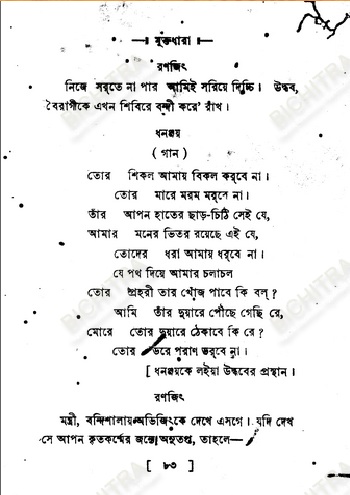 মুক্তধারা
রণজিৎ
নিজে সর্‌তে না পার আমিই সরিয়ে দিচ্চি। উদ্ধব,
বৈরাগীকে এখন শিবিরে বন্দী করে' রাখ।
ধনঞ্জয়
( গান )
তোর শিকল আমায় বিকল কর্‌বে না।
তোর মারে মরম মর্‌বে না।
তাঁর আপন হাতের ছাড়-চিঠি সেই যে,
আমার মনের ভিতর রয়েছে এই যে,
তোদের ধরা আমায় ধর্‌বে না।
যে পথ দিয়ে আমার চলাচল
তোর প্রহরী তার খোঁজ পাবে কি বল্?
আমি তাঁর দুয়ারে পৌঁছে গেছি রে,
মোরে তোর দুয়ারে ঠেকাবে কি রে?
তোর ডরে পরাণ ডর্‌বে না।
[ ধনঞ্জয়কে লইয়া উদ্ধবের প্রস্থান।
রণজিৎ
মন্ত্রী, বন্দিশালায় অভিজিৎকে দেখে এসগে। যদি দেখ
সে আপন কৃতকর্ম্মের জন্যে অনুতপ্ত, তাহলে—
[ ৮৩ ]
BICHITRA